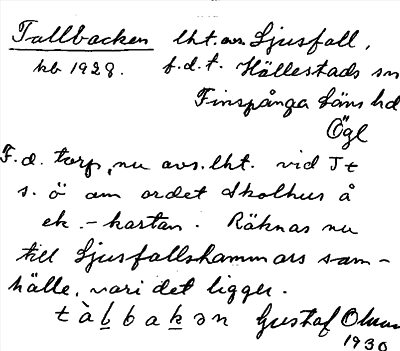 Tallbacken lht. av Ljusfall,
kb 1928. f.d.t. Hällestads sn
Finspånga läns hd
Ögl
F.d. torp, nu avs. lht. vid J t
s. ö om ordet Skolhus å
ek.-kartan. Räknas nu
till Ljusfallshammars sam-
hälle, vari det ligger.
tàḻbaḵən Gustaf Olsson
1930